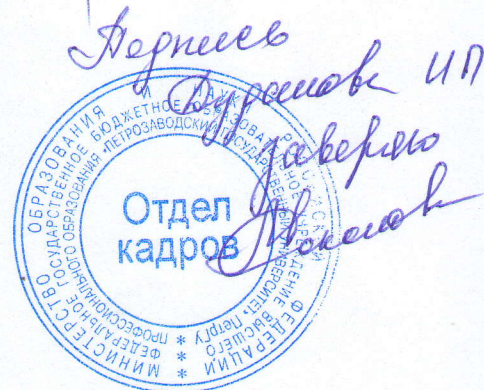 Подпись
ИП
заверяю
МИНИСТЕРСТВО ОБРАЗОВАНИЯ И НАУКИ РОССИЙСКОЙ ФЕДЕРАЦИИ
ФЕДЕРАЛЬНОЕ ГОСУДАРСТВЕННОЕ БЮДЖЕТНОЕ ОБРАЗОВАТЕЛЬНОЕ УЧРЕЖДЕНИЕ ВЫСШЕГО
ПРОФЕССИОНАЛЬНОГО ОБРАЗОВАНИЯ «ПЕТРОЗАВОДСКИЙ ГОСУДАРСТВЕННЫЙ УНИВЕРСИТЕТ» ПетрГУ
Отдел
кадров